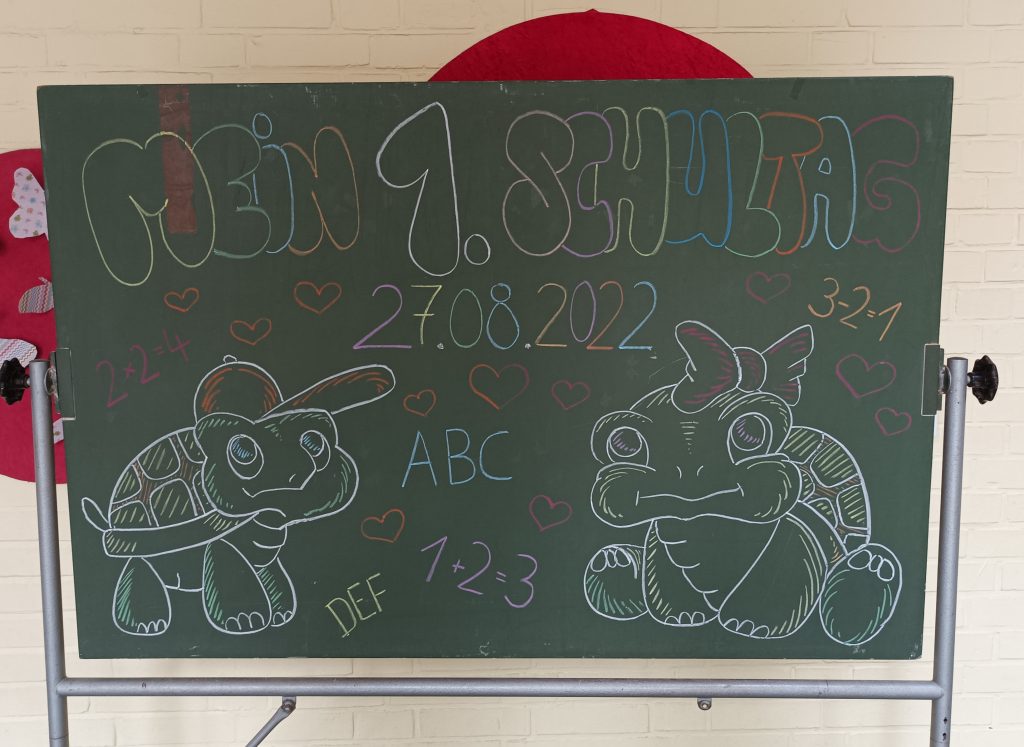 MEIN 1. SCHULTAG
27.08.2022
3-2=1
2+2=4
ABC
1+2=3
DEF